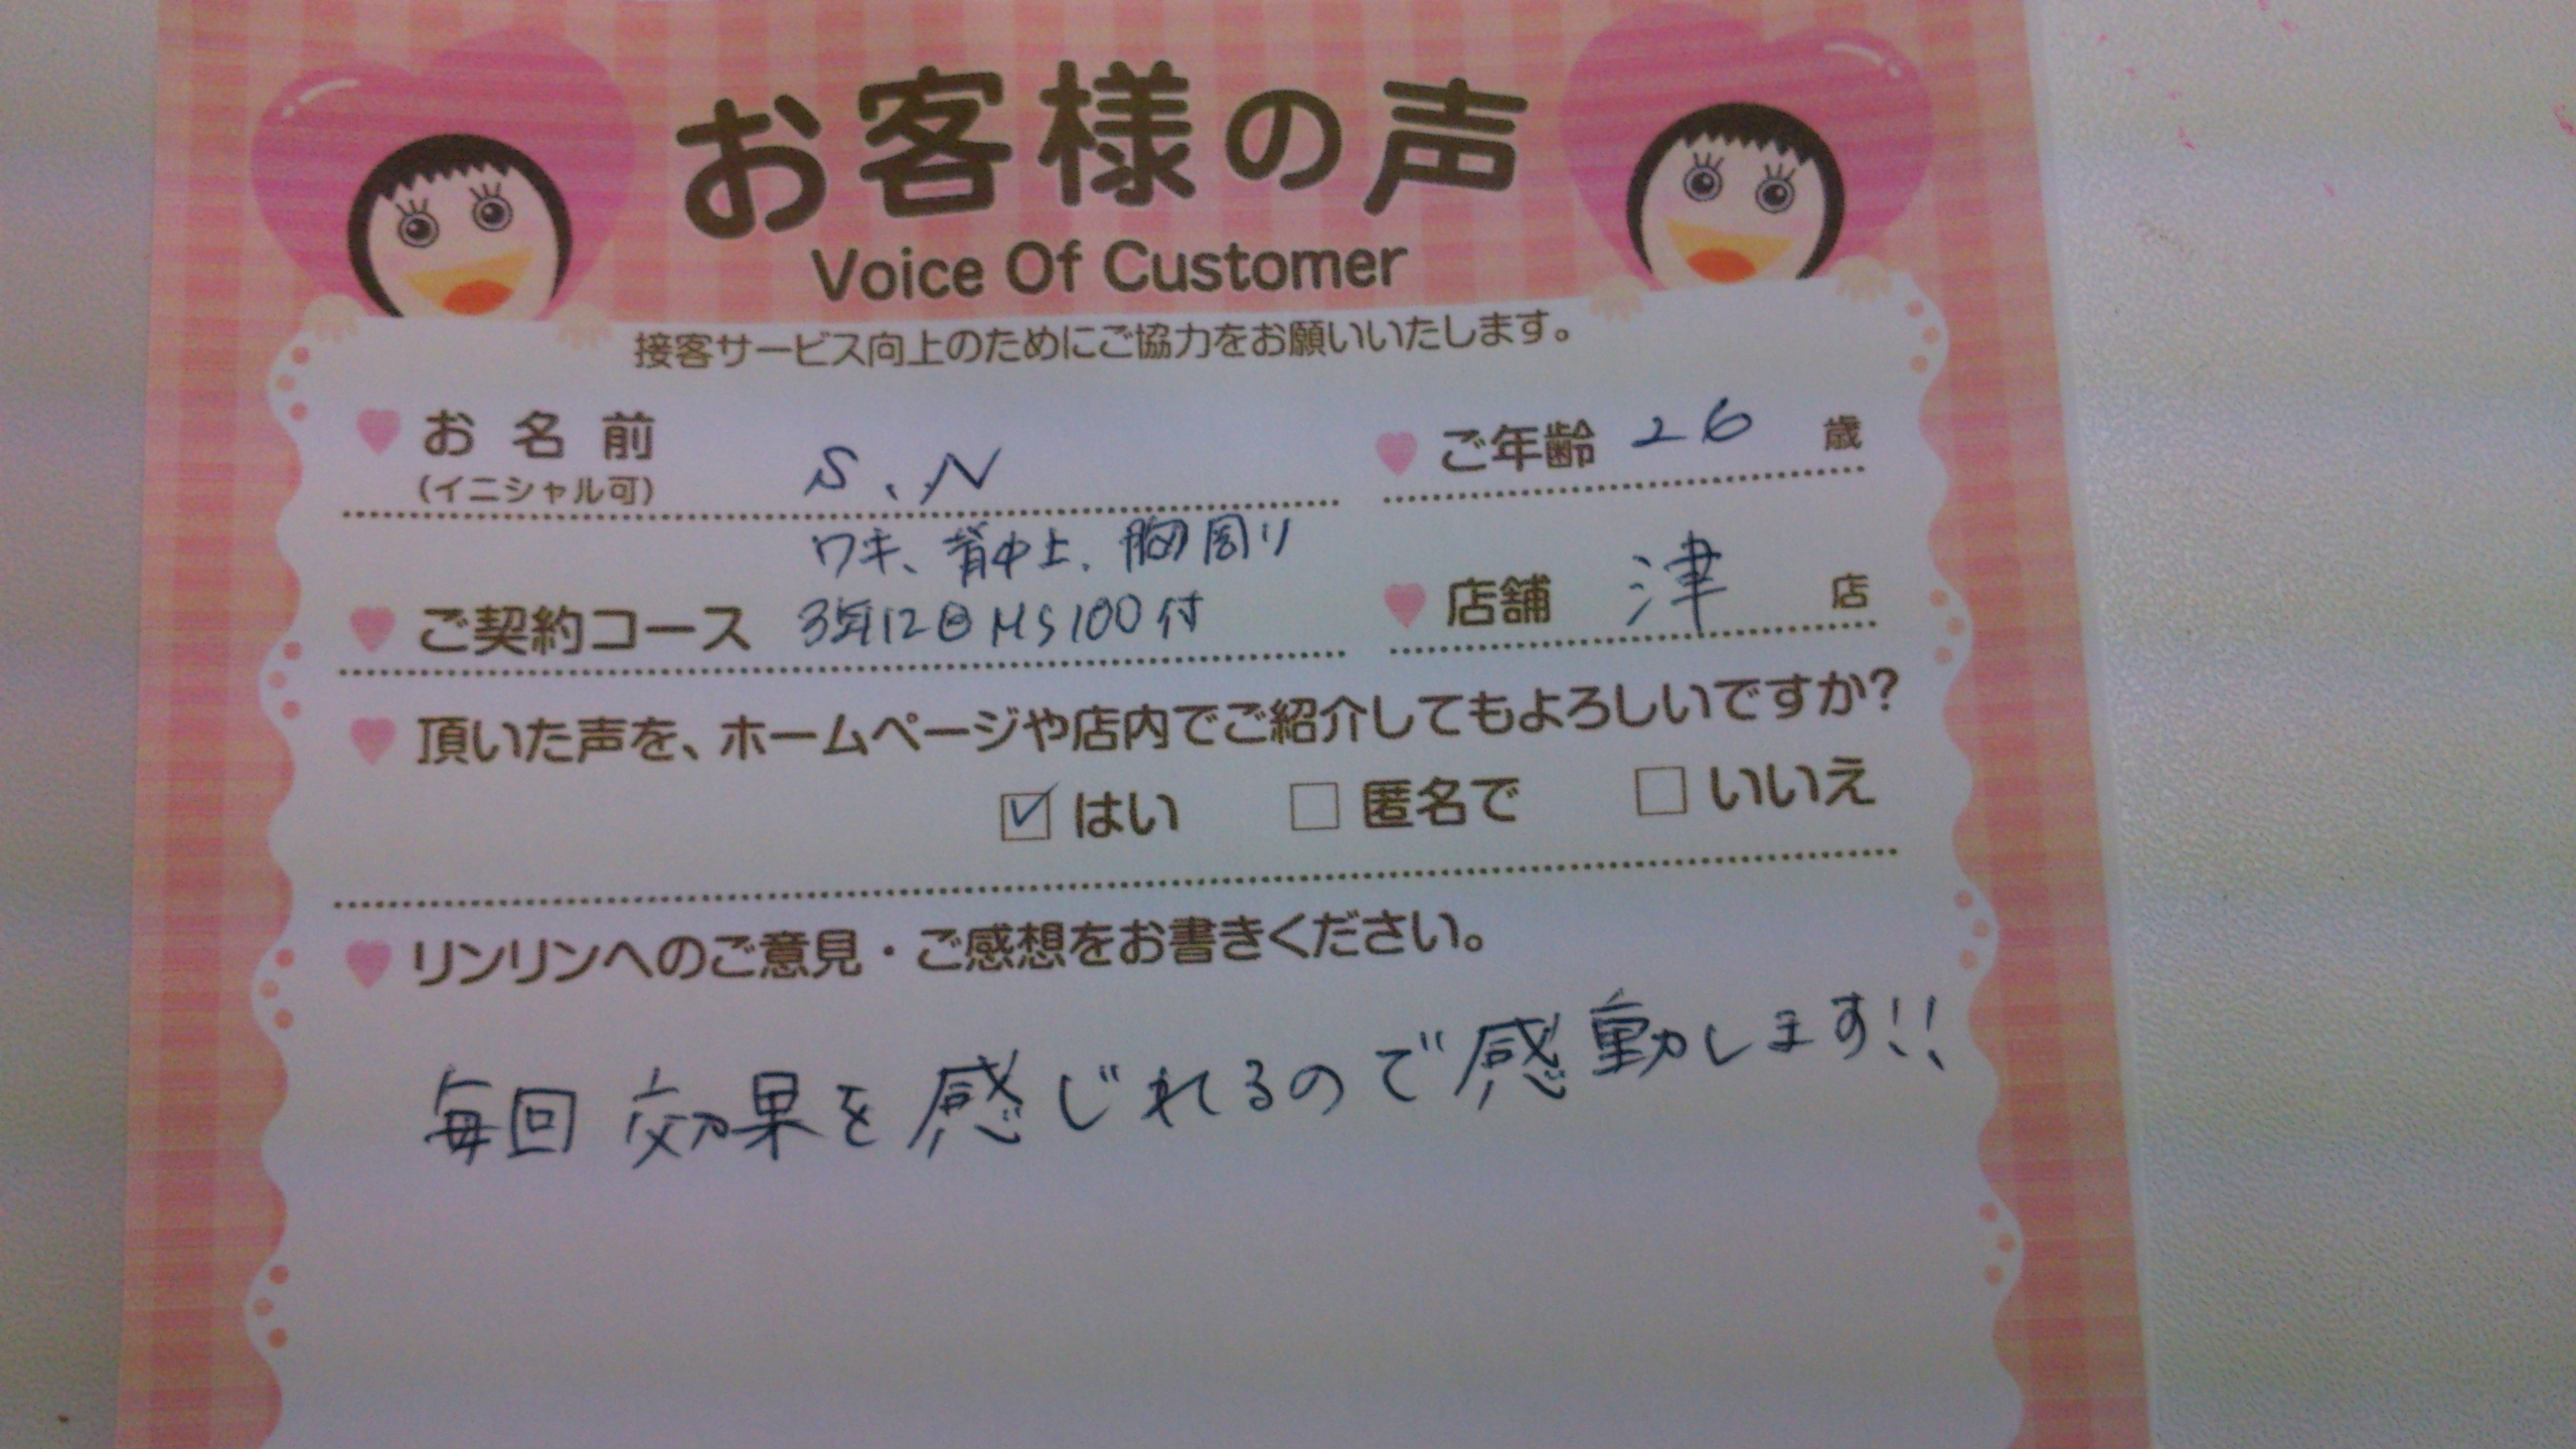 お客様の声
Voice Of Customer
接客サービス向上のためにご協力をお願いいたします。
お名前 S.N ご年齢 26 歳
(イニシャル可)
ワキ、背中上、胸周り
ご契約コース 3年12回 MS100付 店舗 津 店
頂いた声を、ホームページや店内でご紹介してもよろしいですか?
はい 匿名で いいえ
リンリンへのご意見・ご感想をお書きください。
毎回 効果を感じれるので感動します!!